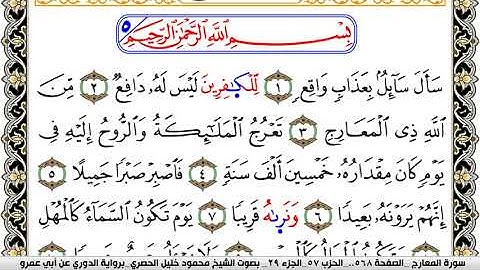 بِسْمِ اللَّهِ الرَّحْمَٰنِ الرَّحِيمِ
سَأَلَ سَآئِلُۢ بِعَذَابٖ وَاقِعٖ ١ لِّلْكَٰفِرِينَ لَيْسَ لَهُۥ دَافِعٞ ٢ مِّنَ
ٱللَّهِ ذِي ٱلْمَعَارِجِ ٣ تَعْرُجُ ٱلْمَلَٰٓئِكَةُ وَٱلرُّوحُ إِلَيْهِ فِي
يَوْمٖ كَانَ مِقْدَارُهُۥ خَمْسِينَ أَلْفَ سَنَةٖ ٤ فَٱصْبِرْ صَبْرٗا جَمِيلًا ٥
إِنَّهُمْ يَرَوْنَهُۥ بَعِيدٗا ٦ وَنَرَىٰهُ قَرِيبٗا ٧ يَوْمَ تَكُونُ ٱلسَّمَآءُ كَٱلْمُهْلِ
سورة المعارج _الصفحة ٥٦٨_ الحزب ٥٧_الجزء ٢٩_ بصوت الشيخ محمود خليل الحصري_برواية الدوري عن أبي عمرو